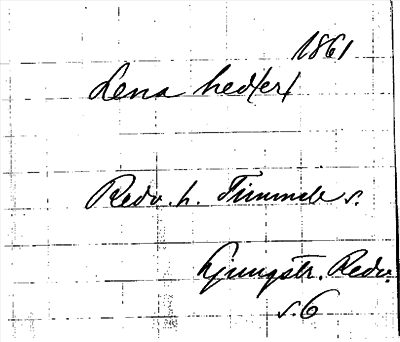 1861
Lena hed/er/
Redv. h. Timmele s.
Ljungstr. Redv.
s. 6